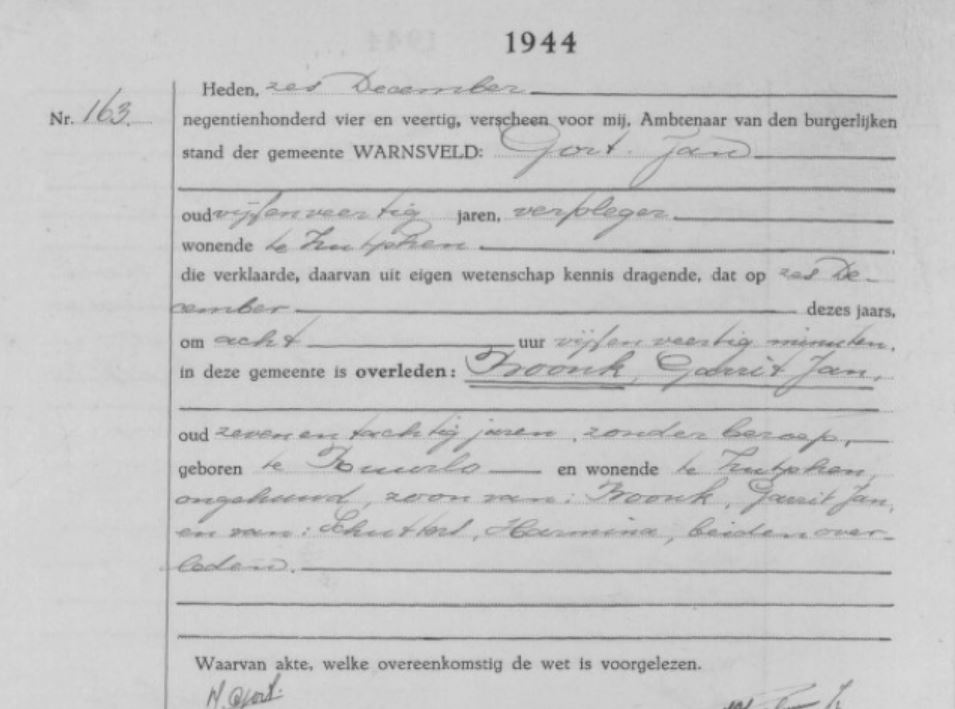 1944
Heden, zes December
Nr. 163.
negentienhonderd vier en veertig, verscheen voor mij, Ambtenaar van den burgerlijken
stand der gemeente WARNSVELD: Gort. Jan
oud vijfenveertig jaren, verpleger
wonende te Zutphen
die verklaarde, daarvan uit eigen wetenschap kennis dragende, dat op zes De-
cember dezes jaars,
om acht uur vijfenveertig minuten,
in deze gemeente is overleden: Gerrit Jan,
oud zevenentachtig jaren, zonder beroep,
geboren te en wonende te Zutphen,
ongehuwd, zoon van: Gerrit Jan,
en van: Harmina, beiden over-
leden.
Waarvan akte, welke overeenkomstig de wet is voorgelezen.
Gort.